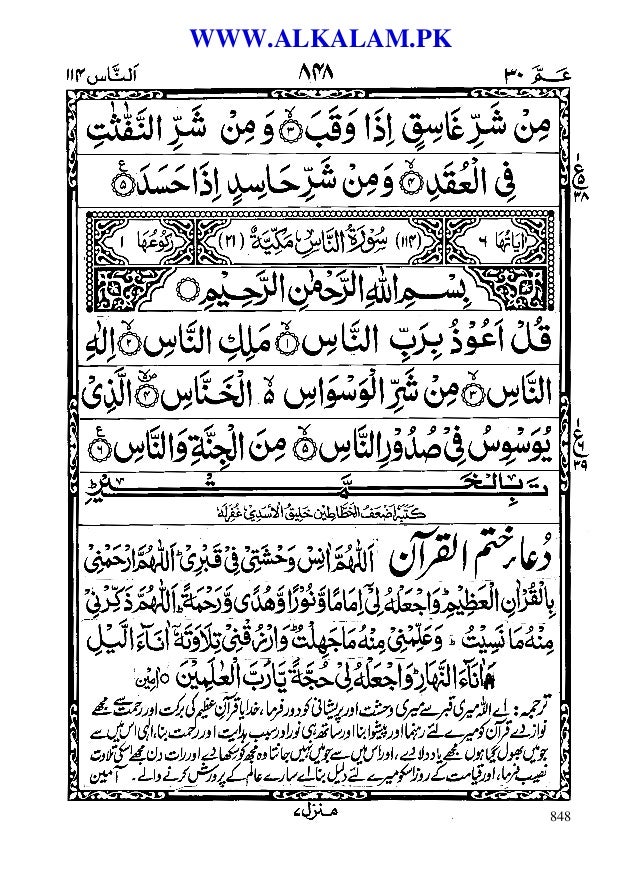 WWW.ALKALAM.PK
عَمَّ ٣٠ ٨٤٨ اَلنَّاس ١١٤
مِنْ شَرِّ غَاسِقٍ اِذَا وَقَبَ ۙ‏﴿۳﴾ وَ مِنْ شَرِّ النَّفّٰثٰتِ
فِی الْعُقَدِ ۙ‏﴿۴﴾ وَ مِنْ شَرِّ حَاسِدٍ اِذَا حَسَدَ ﴿۵﴾
ع ۵ ٣٨
اٰیَاتُهَا ٦ (١١٤) سُوْرَةُ النَّاسِ مَكِّیَّةٌ (٢١) رُكُوْعُهَا ١
بِسْمِ اللّٰهِ الرَّحْمٰنِ الرَّحِیْمِ
قُلْ اَعُوْذُ بِرَبِّ النَّاسِ ۙ‏﴿۱﴾ مَلِكِ النَّاسِ ۙ‏﴿۲﴾ اِلٰهِ
النَّاسِ ۙ‏﴿۳﴾ مِنْ شَرِّ الْوَسْوَاسِ ۙ۬ الْخَنَّاسِ ۪ۙ‏﴿۴﴾ الَّذِیْ
یُوَسْوِسُ فِیْ صُدُوْرِ النَّاسِ ۙ‏﴿۵﴾ مِنَ الْجِنَّةِ وَ النَّاسِ ﴿۶﴾
ع ٦ ٣٩
تَمَّتْ بِالْخَیْرِ
كَتَبَهٗ اَضْعَفُ الْخَطَّاطِیْنَ خَلِیْقُ الْاَسَدِیْ غُفِرَلَهٗ
دُعاءِ ختم القرآن اَللّٰهُمَّ اٰنِسْ وَحْشَتِیْ فِیْ قَبْرِیْ ؕ اَللّٰهُمَّ ارْحَمْنِیْ
بِالْقُرْاٰنِ الْعَظِیْمِ ؕ وَاجْعَلْهُ لِیْ اِمَامًا وَّ نُوْرًا وَّ هُدًی وَّ رَحْمَةً ؕ اَللّٰهُمَّ ذَكِّرْنِیْ
مِنْهُ مَا نَسِیْتُ ؕ وَعَلِّمْنِیْ مِنْهُ مَا جَهِلْتُ ؕ وَارْزُقْنِیْ تِلَاوَتَهٗ اٰنَآءَ الَّیْلِ
وَاٰنَآءَ النَّهَارِ ؕ وَاجْعَلْهُ لِیْ حُجَّةً یَّا رَبَّ الْعٰلَمِیْنَ ۝ اٰمین
ترجمہ: اے اللہ میری قبر سے میری وحشت اور پریشانی کو دور فرما، خدایا قرآن عظیم کی برکت اور رحمت سے مجھے
نواز دے قرآن کو میرے لئے رہنما اور پیشوا بنا اور ساتھ ہی نور اور سبب ہدایت اور رحمت بنا، الٰہی اس میں سے
جو میں بھول گیا ہوں مجھے یاد دلا دے، اور اس میں سے جو میں نہیں جانتا وہ مجھ کو سکھا دے اور رات دن مجھے اسکی تلاوت
نصیب فرما، اور قیامت کے روز اسکو میرے لئے دلیل بنا، اے سارے عالم کے پرورش کرنے والے۔ آمین
منزل ٧
848